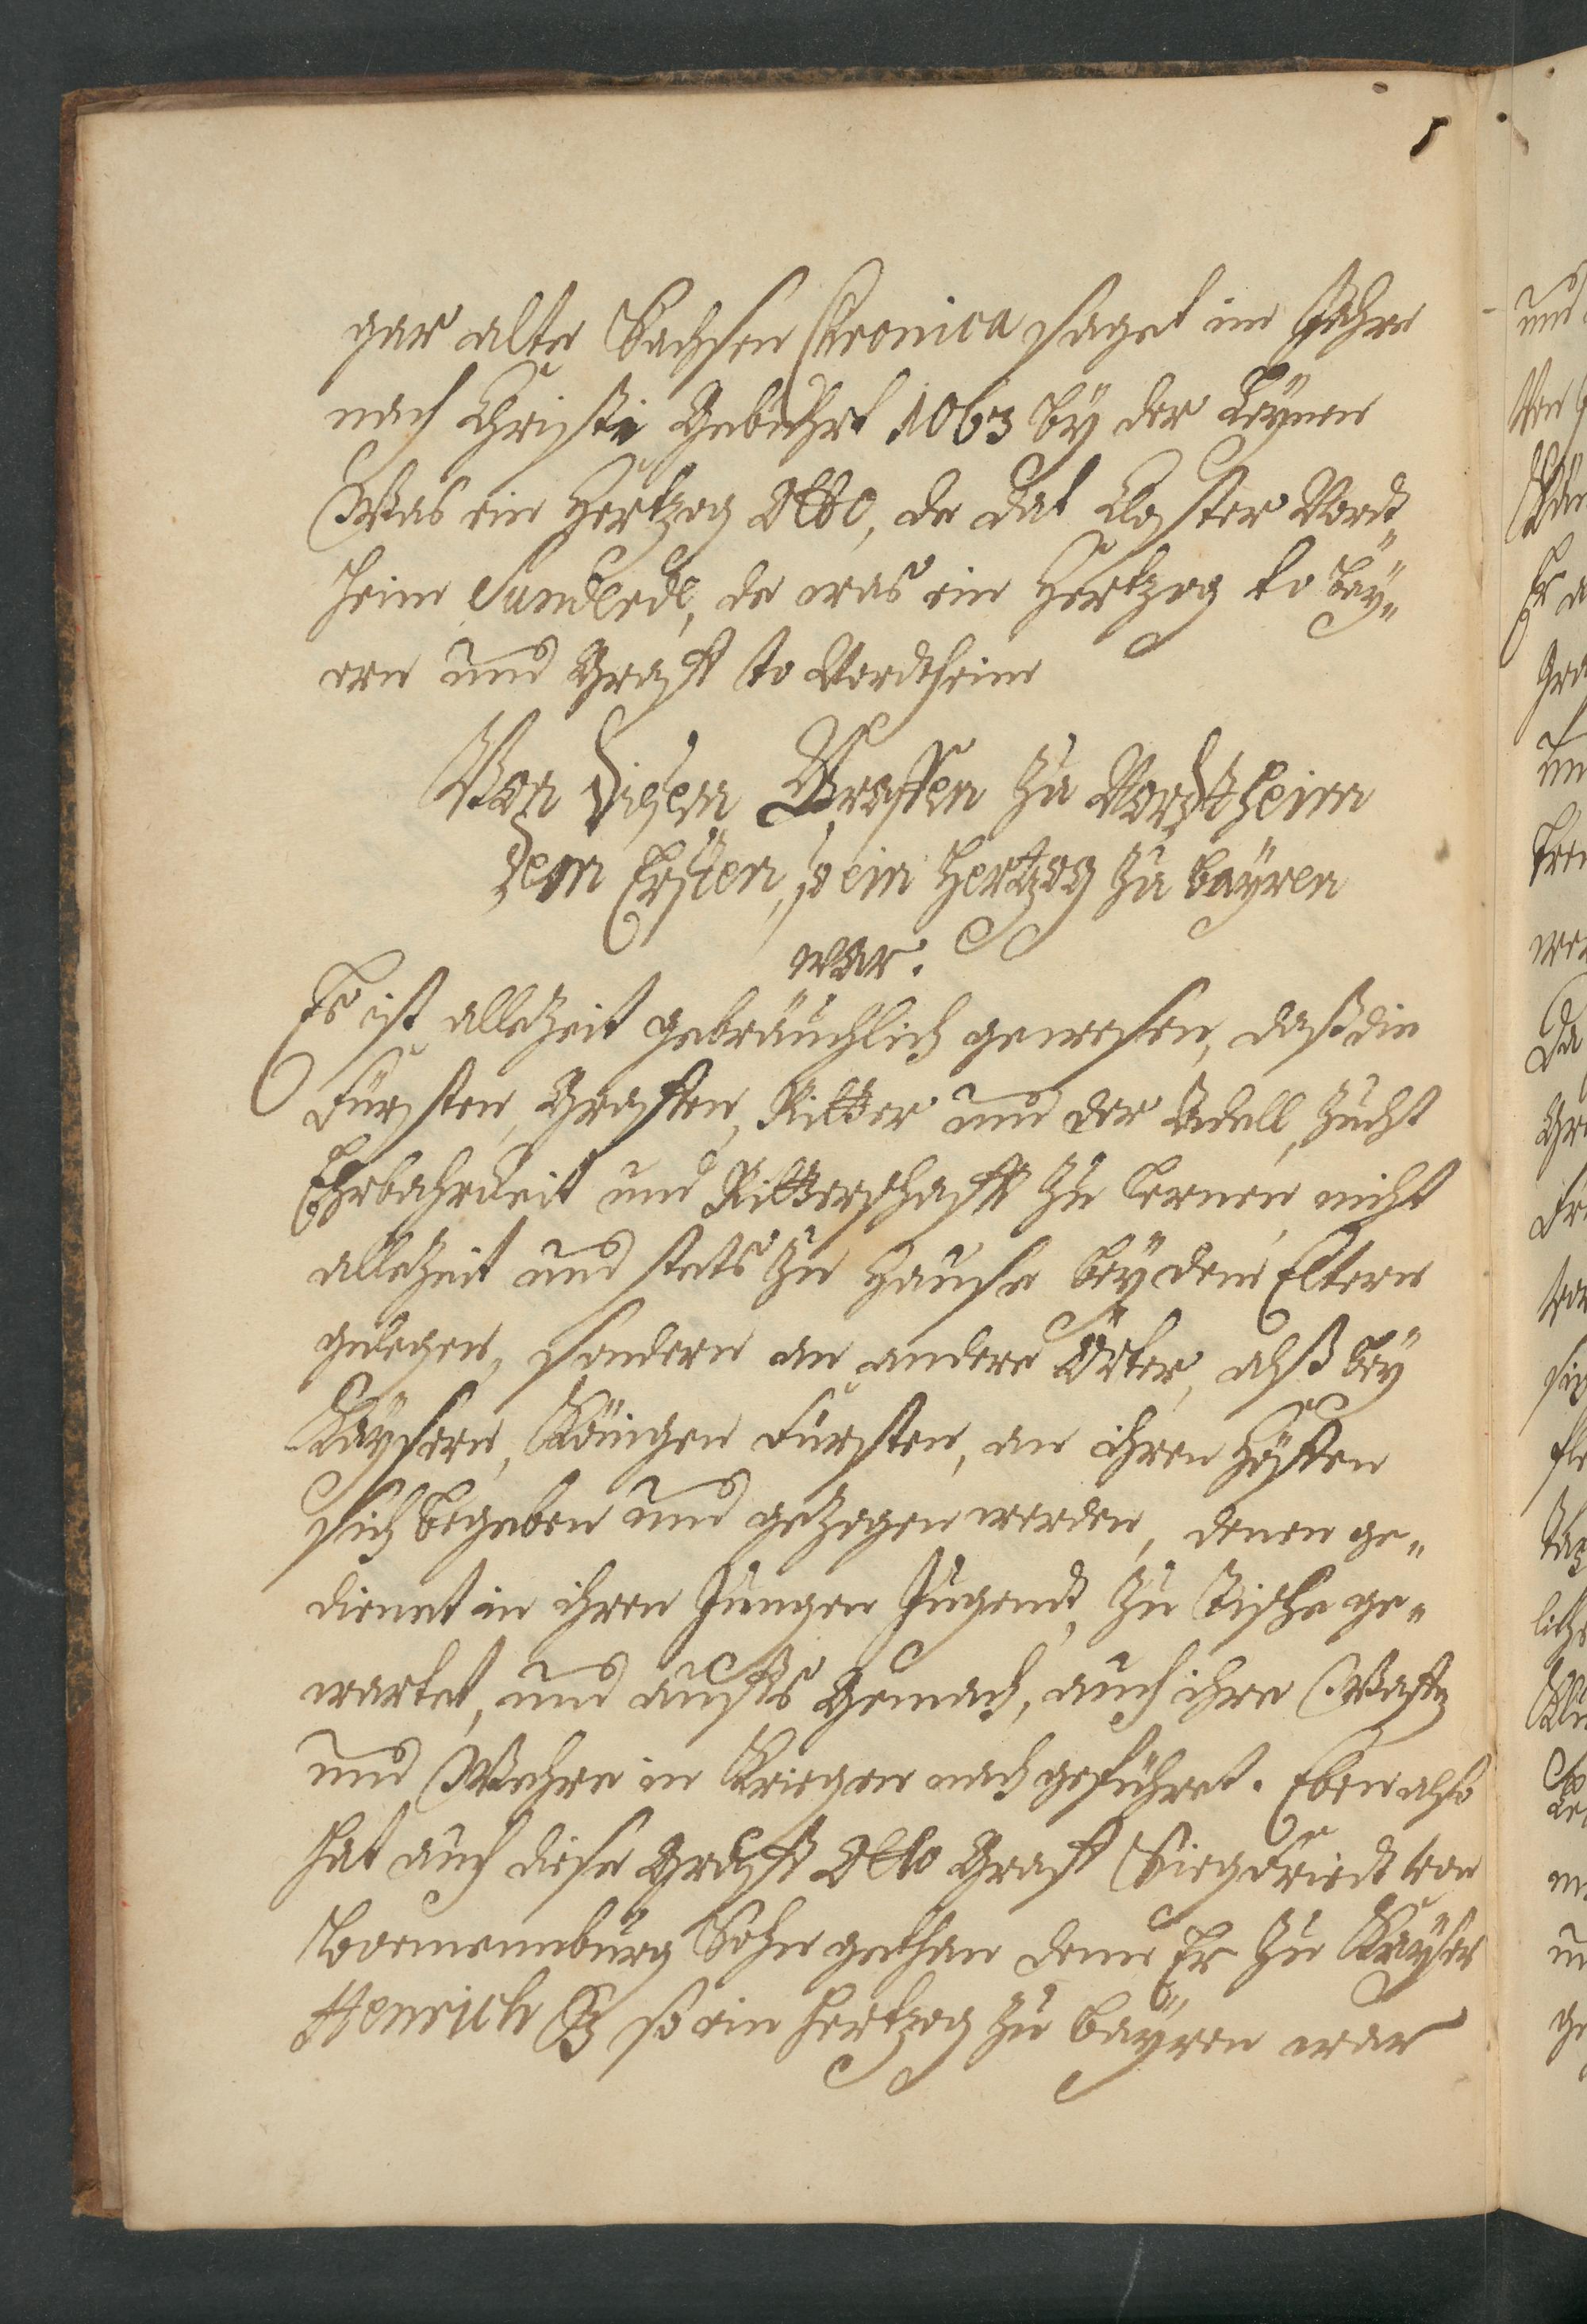 gar alte Sachsen Cronica saget im Jahre
nach Christi Gebuhrt 1063 by der Leynen
Was ein Hertzog Otto, de dat Closter Nordt„
heim Sunderde, de was ein Hertzog to Bey„
ern und Graff to Nordtheim
Von diesem Graffen zu Nordtheim
dem Ersten, so ein Hertzog zu Bayren
war.
Es ist allezeit gebräuchlich gewesen, daß die
Fürsten, Graffen, Ritter und der Adell, Zucht
Ehrbahrkeit und Ritterschafft zu lernen, nicht
allezeit und stets zu Hause bey den Eltern
gelegen, sondern an andere Örter, alß bey
Kaysern, Königen Fürsten, an ihren Höffen
sich begeben und gezogen werden, denen ge„
dienet in ihren Jungen Jugendt, zu Tische ge„
wartet, und auffs Gemach, auch ihre Waffen
und Wehre in Kriegen nach geführet. Eben also
hat auch diese Graff Otto Graff Siegfriedt von
Boemennburg Sohn gethan denn Er zu Kayser
Henrich so ein Hertzog zu Bayren war